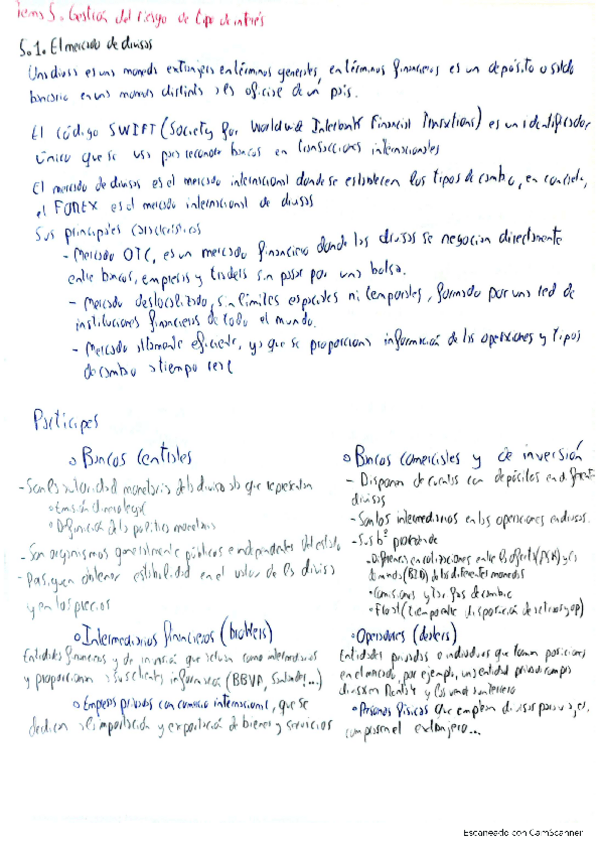 Tema 5. Gestión del riesgo de tipo de interés
5.1. El mercado de divisas
Una divisa es una moneda extranjera en términos generales, en términos financieros es un depósito o saldo
bancario en una moneda distinta a la oficial de un país.
El código SWIFT (Society for Worldwide Interbank Financial Transactions) es un identificador
único que se usa para reconocer bancos en transacciones internacionales
El mercado de divisas es el mercado internacional donde se establecen los tipos de cambio, en concreto,
el FOREX es el mercado internacional de divisas
Sus principales características
- Mercado OTC, es un mercado financiero donde las divisas se negocian directamente
entre bancos, empresas y traders sin pasar por una bolsa.
- Mercado deslocalizado, sin límites espaciales ni temporales, formado por una red de
instituciones financieras de todo el mundo.
- Mercado altamente eficiente, ya que se proporciona información de las operaciones y tipos
de cambio a tiempo real
Partícipes
Bancos Centrales
- Son la autoridad monetaria de la divisa a la que representan
Emisión dinero legal
Definición de la política monetaria
- Son organismos generalmente públicos e independientes del estado
- Persiguen obtener estabilidad en el valor de las divisas
y en los precios
Intermediarios financieros (brokers)
Entidades financieras y de inversión que actúan como intermediarios
y proporcionan a sus clientes información (BBVA, Santander...)
Empresas privadas con comercio internacional, que se
dedican a la importación y exportación de bienes y servicios
Bancos comerciales y de inversión
- Disponen de cuentas con depósitos en diferentes
divisas
- Son los intermediarios en las operaciones en divisas.
- Sus bº proceden de
- Diferencias en cotizaciones entre la oferta (ASK) y la
demanda (BID) de las diferentes monedas
Comisiones y tarifas de cambio
Float (tiempo entre disposición de activos y op)
Operadores (dealers)
Entidades privadas o individuos que toman posiciones
en el mercado, por ejemplo, una entidad privada compra
divisas en y las vende a un tercero
Personas físicas que emplean divisas para viajes,
compras en el extranjero...
Escaneado con CamScanner